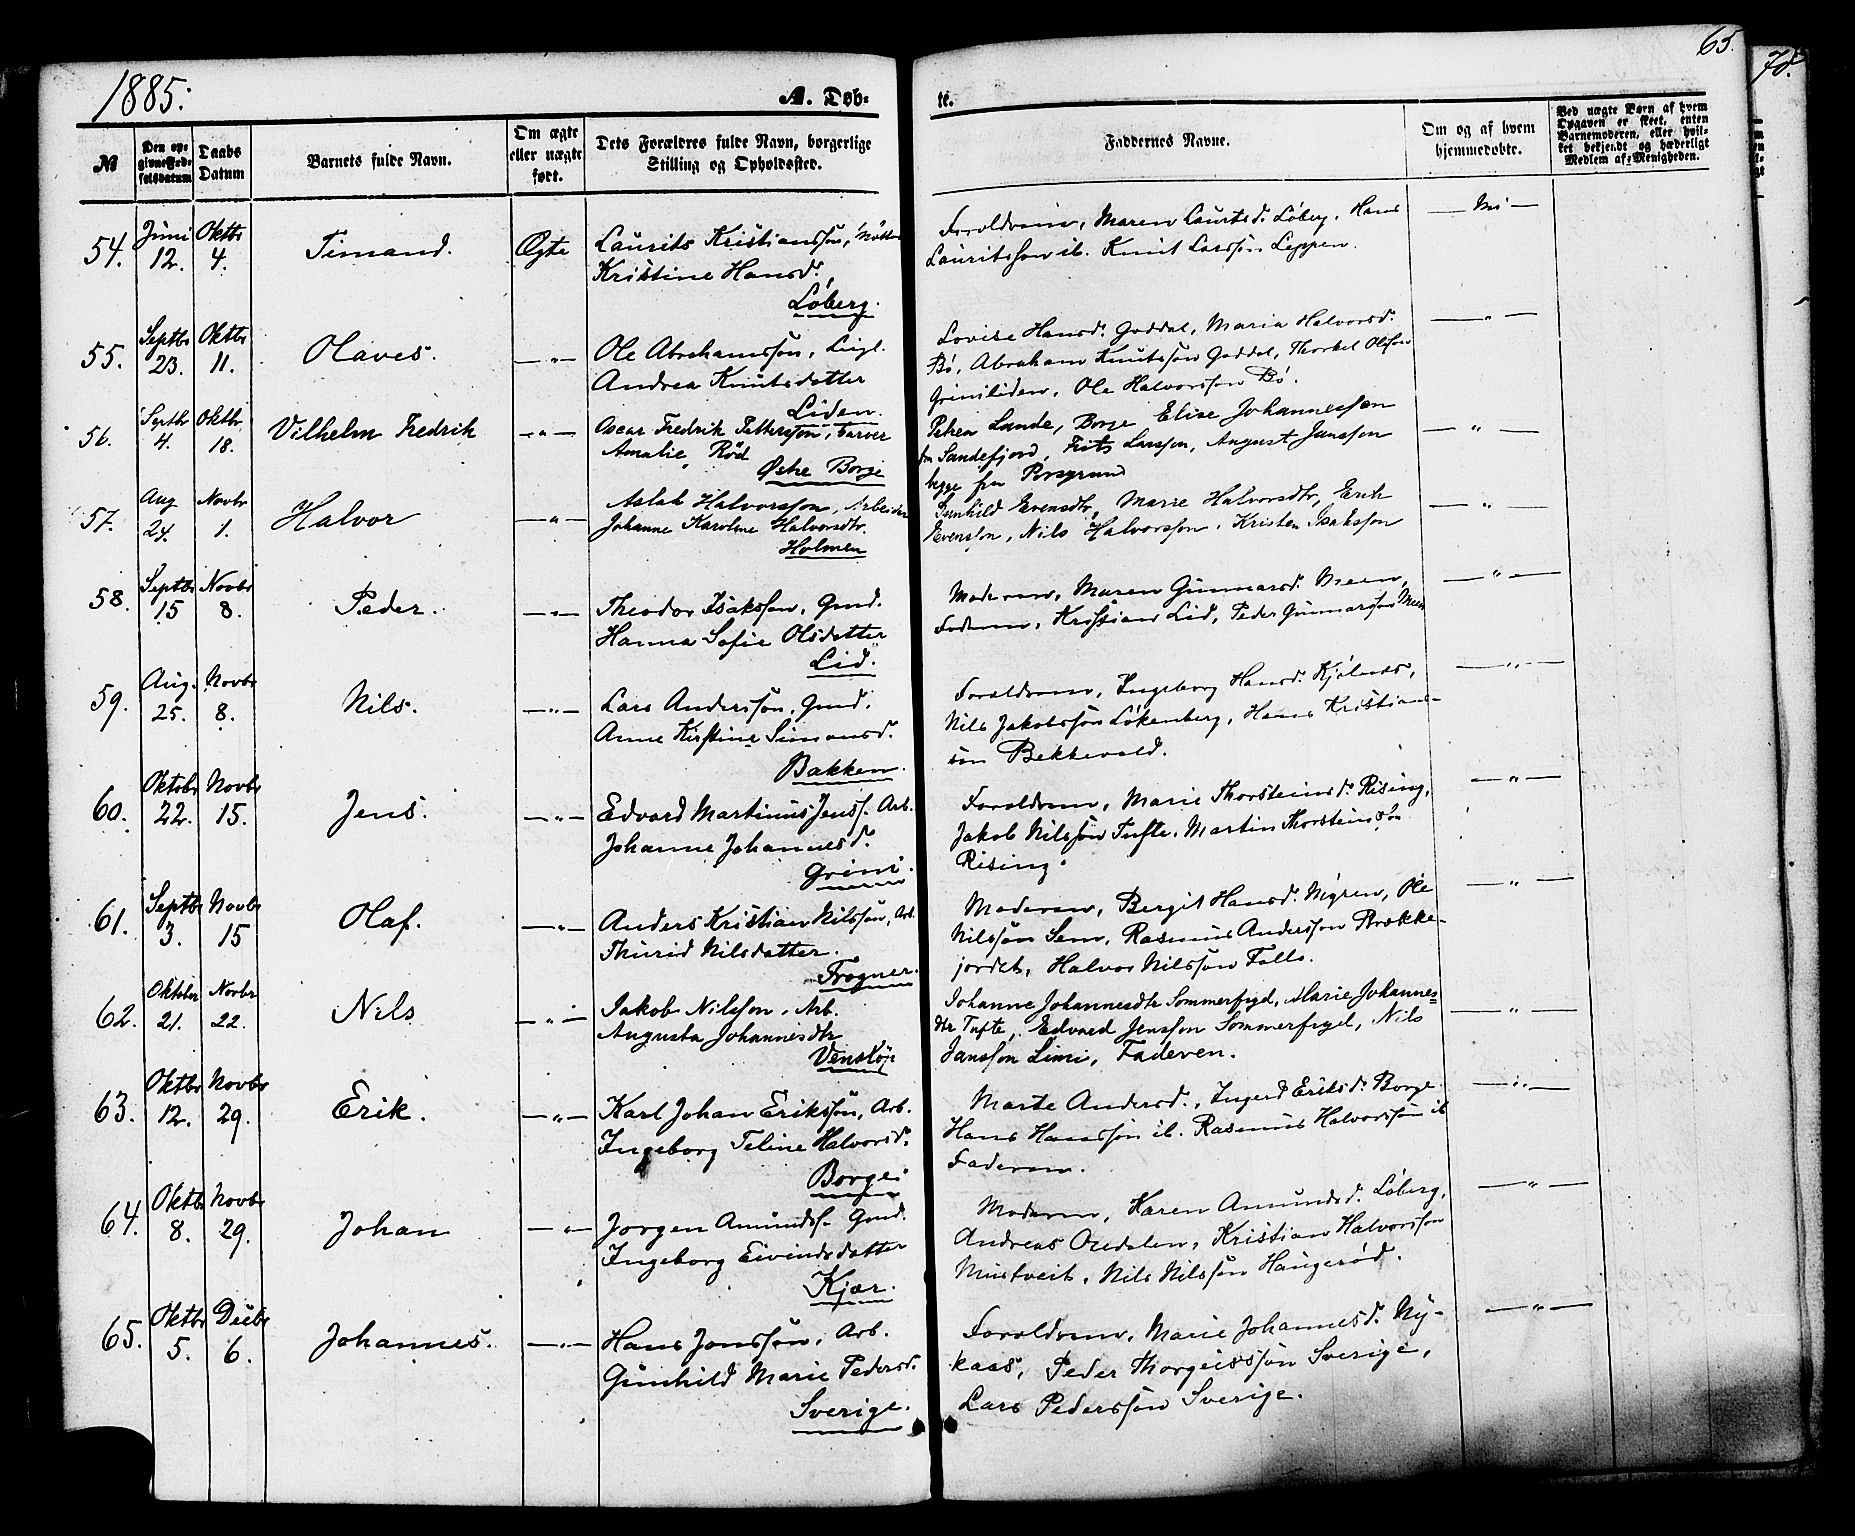 1885.
A. Døb-
te.
65.
70.
№
Den op-
givne Fød-
selsdatum
Daabs
Datum
Barnets fulde Navn.
Om ægte
eller uægte
født.
Dets Forældres fulde Navn, borgerlige
Stilling og Opholdssted.
Faddernes Navne.
Om og af hvem
hjemmedøbt.
Ved uægte Børn af hvem
Opgaven er skeet, enten
Barnemoderen, eller hvil-
ket bekjendt og hæderligt
Medlem af Menigheden.
54. Juni 12. Oktbr 4. Timand. Ægte
Laurits Kristianssøn,
Kristine Hansd.
Løberg.
Forældrene, Maren Lauritsd. Løberg, Hans
Lauritssøn ib. Knut Larssøn Leppen.
55. Septbr 23. Oktbr 11. Olaves. — " —
Ole Abrahamssøn,
Andrea Knutsdatter
Liden.
Lovise Hansd. Goddal, Maria Halvorsd.
Bö, Abraham Knutssøn Goddal, Thorkel Olssøn
Griniliden, Ole Halvorssøn Bö.
— " —
56. Septbr 4. Oktbr. 18. Vilhelm Fredrik — " —
Oscar Fredrik Pettersson, Garver
Amalie, Röd
Østre Borge
Petrea Lande, Borge Elise Johannessen
Sandefjord, Frits Larsson, August Jansson
begge fra Porsgrund
— " —
57. Aug 24. Novbr 1. Halvor — " —
Aslak Halvorsson, Arbeider
Johanne Karoline Halvorsdtr.
Holmen
Gunhild Evensdtr, Marie Halvorsdtr, Erik
Evensson, Nils Halvorsson, Kristen Isaksson
— " —
58. Septbr 15 Novbr 8. Peder. — " —
Theodor Isakssøn, Gmd.
Hanna Sofie Olsdatter
Lid.
Moderen, Maren Gunnarsd. Meen,
Faderen, Kristian Lid, Peder Gunnarssøn Meen
— " —
59. Aug. 25. Novbr 8. Nils. — " —
Lars Anderssøn, Gmd.
Anne Kirstine Simonsd.
Bakken.
Forældrene, Ingeborg Hansd. Kjölnes,
Nils Jakobssøn Løkenberg, Hans Kristians-
søn Bekkevold.
— " —
60. Oktobr 22. Novbr 15. Jens. — " —
Edvard Martinus Jenss. Arb.
Johanne Johannesd.
Grini.
Forældrene, Marie Thorsteinsd. Rising,
Jakob Nilssøn Tufte, Martin Thorsteinssøn
Rising.
— " —
61. Septbr 3. Novbr 15 Olaf. — " —
Anders Kristian Nilssøn, Arb.
Thurid Nilsdatter.
Frogner.
Moderen, Bergit Hansd. Myren, Ole
Nilssøn Sem, Rasmus Anderssøn Brække-
jordet, Halvor Nilssøn Falls.
— " —
62. Oktober 21. Novbr 22. Nils — " —
Jakob Nilsson, Arb.
Augusta Johannesdtr
Venstøp
Johanne Johannesdtr Sommerfryd, Marie Johannes-
dtr Tufte, Edvard Jensson Sommerfryd, Nils
Jansson Limi, Faderen.
— " —
63. Oktbr 12. Novbr 29. Erik. — " —
Karl Johan Erikssøn, Arb.
Ingeborg Teline Halvorsd.
Borge.
Marte Andersd., Ingerd Eriksd. Borge
Hans Hanssøn ib. Rasmus Halvorssøn ib
Faderen.
— " —
64. Oktbr 8. Novbr 29. Johan — " —
Jørgen Amundss. Gmd.
Ingeborg Eivindsdatter
Kjær.
Moderen, Karen Amundsd. Løberg,
Andreas Ouedalen, Kristian Halvorssøn
Mustveit, Nils Nilssøn Haugerød.
— " —
65. Oktbr 5. Decbr 6. Johannes. — " —
Hans Jonssøn, Arb.
Gunhild Marie Pedersd.
Sverige.
Forældrene, Marie Johannesd. Ny-
kaas, Peder Thorgeirssøn Sverige,
Lars Pederssøn Sverige.
— " —